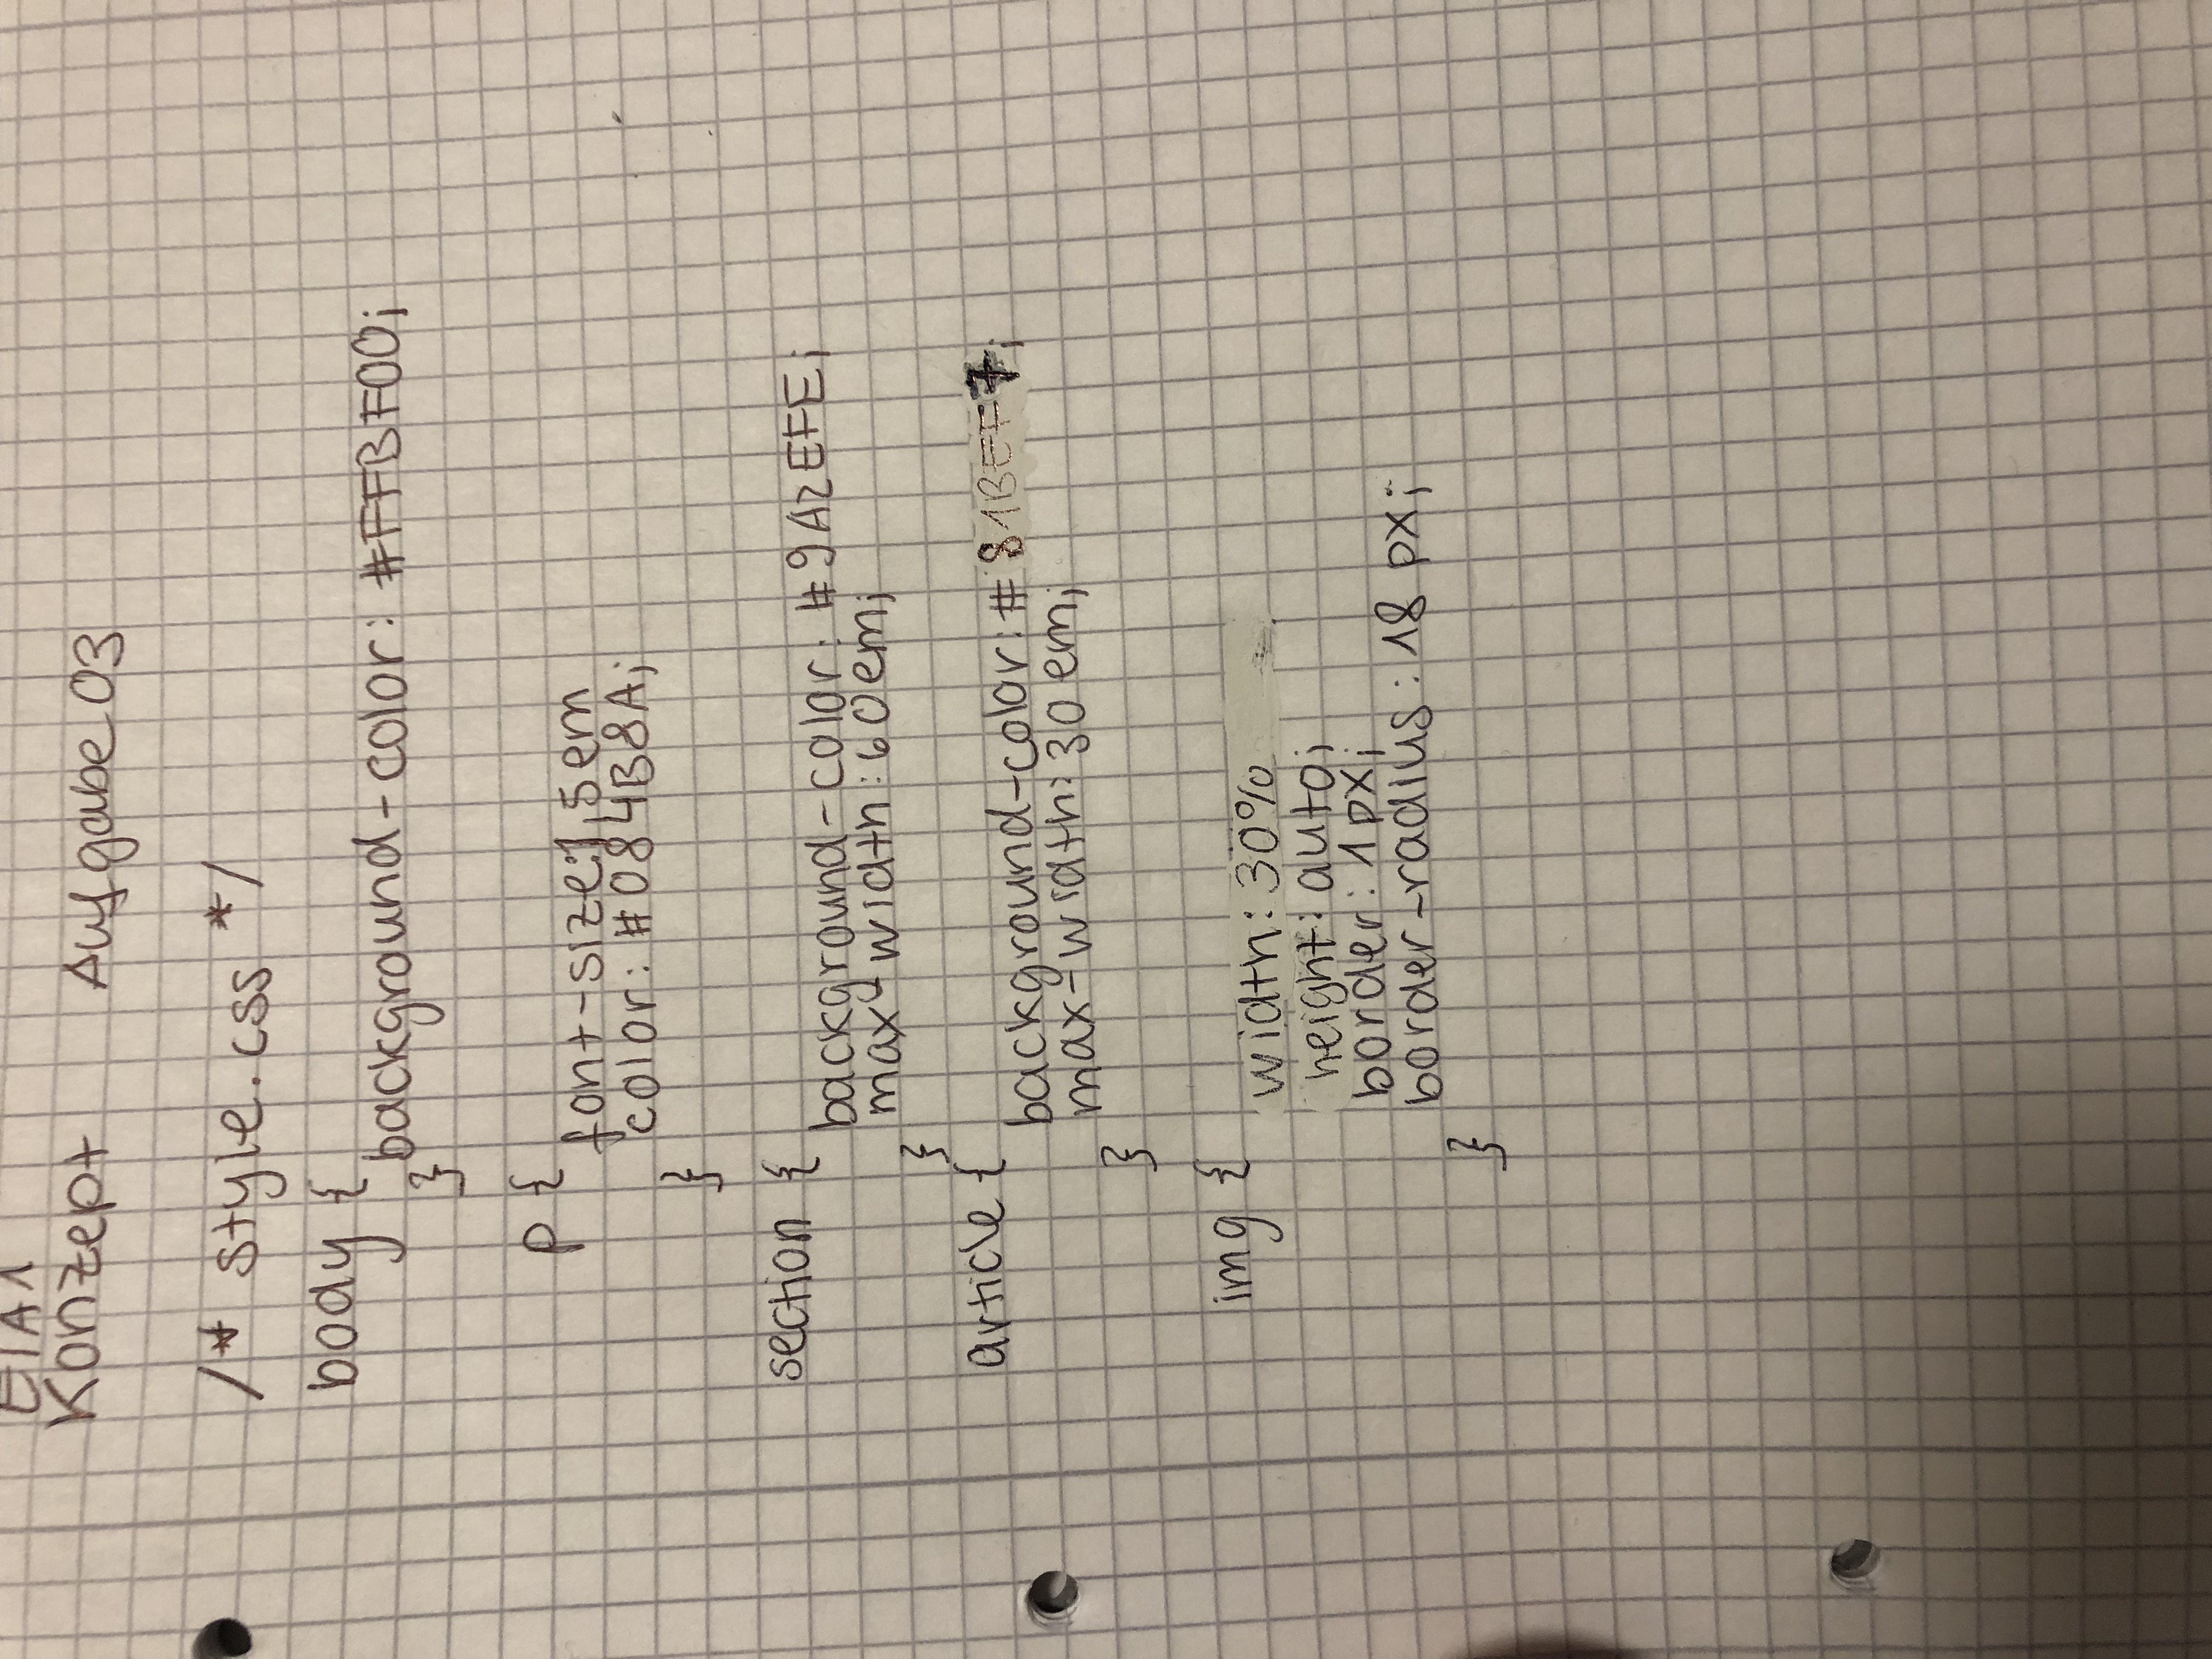 EIA1
Konzept Aufgabe 03
/* style.css */
body {
background-color: #FFBF00;
}
p {
font-size:1,5em
color: #084B8A;
}
section {
background-color: #9A2EFE;
max-width: 60em;
}
article {
background-color: #81BEF7;
max-width: 30em;
}
img {
width: 30%
height: auto;
border: 1px;
border-radius: 18 px;
}